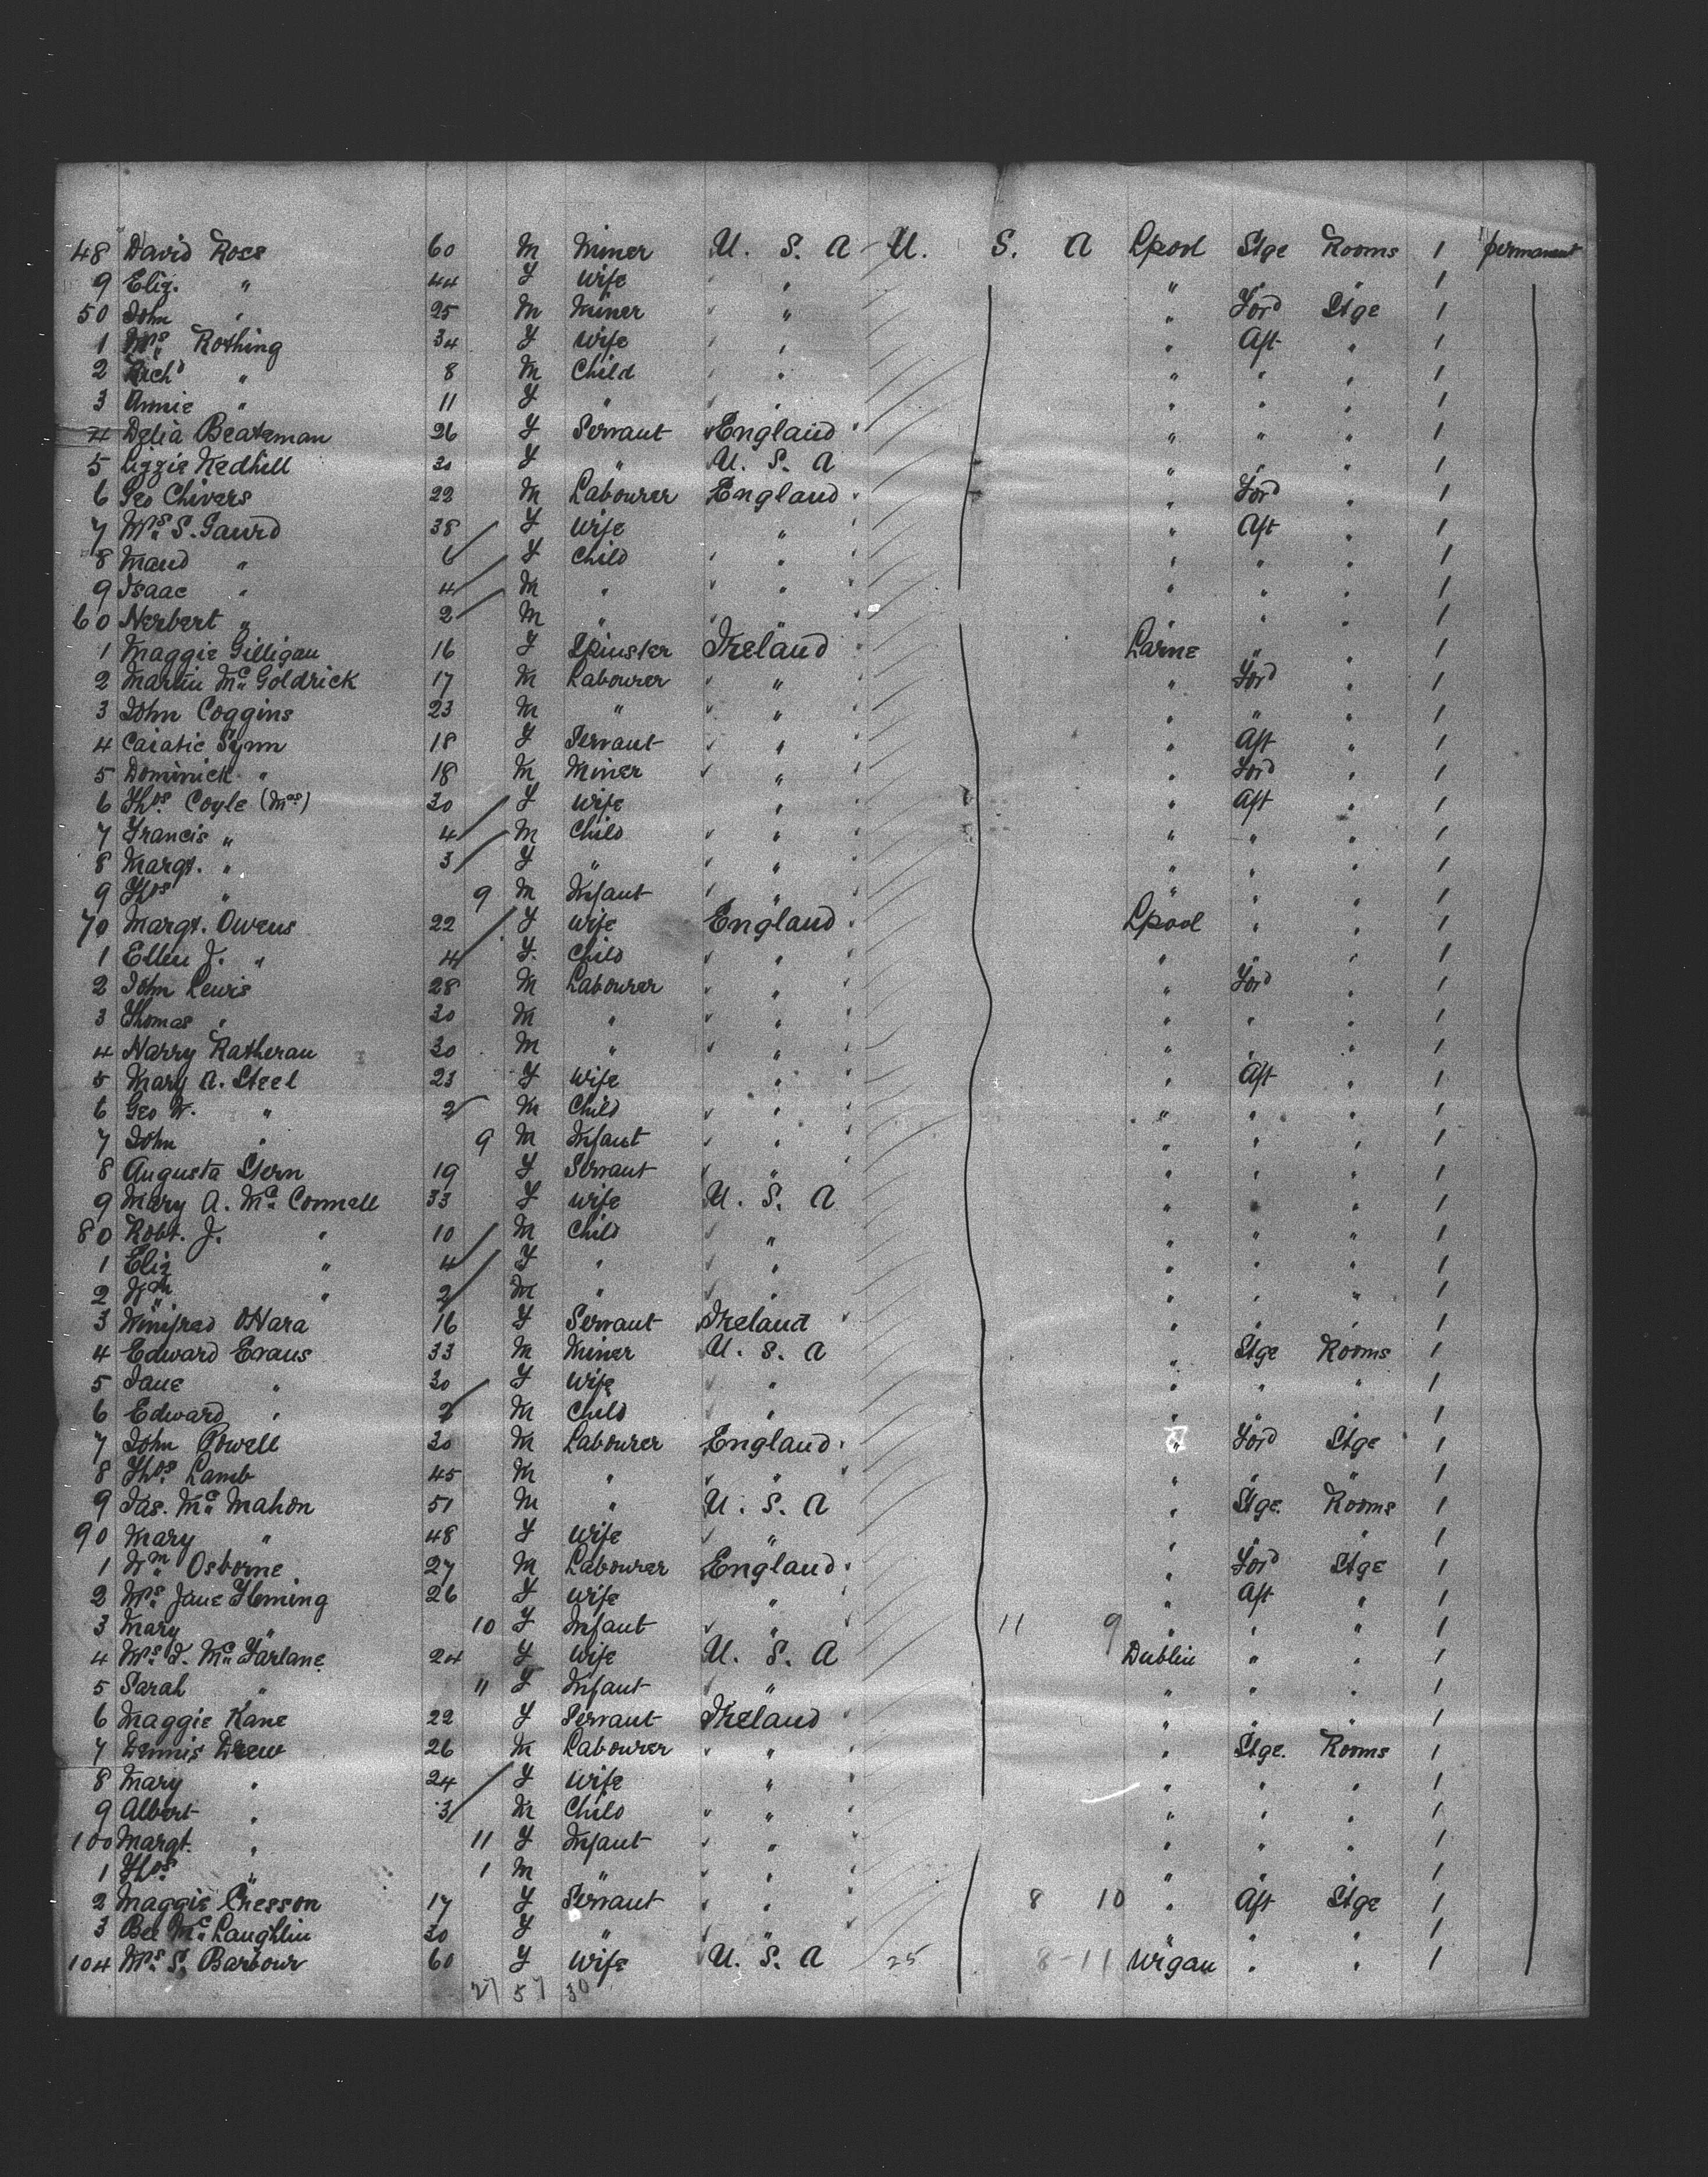 48 David Ross 60 M Miner U. S. A U. S. A Lpool Stge Rooms 1 permanent
9 Eliz. " 44 F Wife " " " " " 1
50 John " 25 M Miner " " " Ford Stge 1
1 Mrs Rothing 34 F Wife " " " Aft " 1
2 Richd " 8 M Child " " " " " 1
3 Annie " 11 F " " " " " " 1
4 Delia Beateman 26 F Servant England " " " 1
5 Lizzie Kedhill 30 F " U. S. A " " " 1
6 Geo Chivers 22 M Labourer England " Ford " 1
7 Mrs S. Gaurd 38 F Wife " " Aft " 1
8 Maud " 6 F Child " " " " " 1
9 Isaac " 4 M " " " " " " 1
60 Herbert " 2 M " " " " " " 1
1 Maggie Gilligan 16 F Spinster Ireland Larne " " 1
2 Martin McGoldrick 17 M Labourer " " " Ford " 1
3 John Coggins 23 M " " " " " " 1
4 Fynn 18 F Servant " " " Aft " 1
5 Dominick " 18 M Miner " " " Ford " 1
6 Thos Coyle (Mrs) 30 F Wife " " Aft " 1
7 Francis " 4 M Child " " " " " 1
8 Margt. " 3 F " " " " " " 1
9 Thos " 9 M Infant " " " " " 1
70 Margt. Owens 22 F Wife England Lpool " " 1
1 Ellen J. " 4 F. Child " " " " " 1
2 John Lewis 28 M Labourer " " " Ford " 1
3 Thomas " 30 M " " " " " " 1
4 Harry Ratheran 30 M " " " " " " 1
5 Mary A. Steel 23 F Wife " " Aft " 1
6 Geo W. " 2 M Child " " " " " 1
7 John " 9 M Infant " " " " " 1
8 Augusta Stern 19 F Servant " " " " " 1
9 Mary A. McConnell 33 F Wife U. S. A " " " 1
80 Robt. J. " 10 M Child " " " " " 1
1 Eliz " 4 F " " " " " " 1
2 Wm " 2 M " " " " " " 1
3 Winifred OHara 16 F Servant Ireland " " " 1
4 Edward Evans 33 M Miner U. S. A " Stge Rooms 1
5 Jane " 30 F Wife " " " " " 1
6 Edward " 2 M Child " " " " " 1
7 John Powell 30 M Labourer England " Ford Stge 1
8 Thos Lamb 45 M " " " " " " 1
9 Jas. McMahon 51 M " U. S. A " Stge. Rooms 1
90 Mary " 48 F Wife " " " " " 1
1 Wm Osborne 27 M Labourer England " Ford Stge 1
2 Mrs Jane Fleming 26 F Wife " " Aft " 1
3 Mary " 10 F Infant " " 11 9 " " " 1
4 Mrs J. McFarlane 24 F Wife U. S. A Dublin " " 1
5 Sarah " 11 F Infant " " " " " 1
6 Maggie Kane 22 F Servant Ireland " " " 1
7 Dennis Drew 26 M Labourer " " " Stge. Rooms 1
8 Mary " 24 F Wife " " " " 1
9 Albert " 3 M Child " " " " " 1
100 Margt. " 11 F Infant " " " " " 1
1 Thos " 1 M " " " " " " 1
2 Maggie Cresson 17 F Servant " " 8 10 " Aft Stge 1
3 McLaughlin 30 F " " " " " " 1
104 Mrs S. Barbour 60 F Wife U. S. A 25 8-11 Wigan " " 1
27 57 30